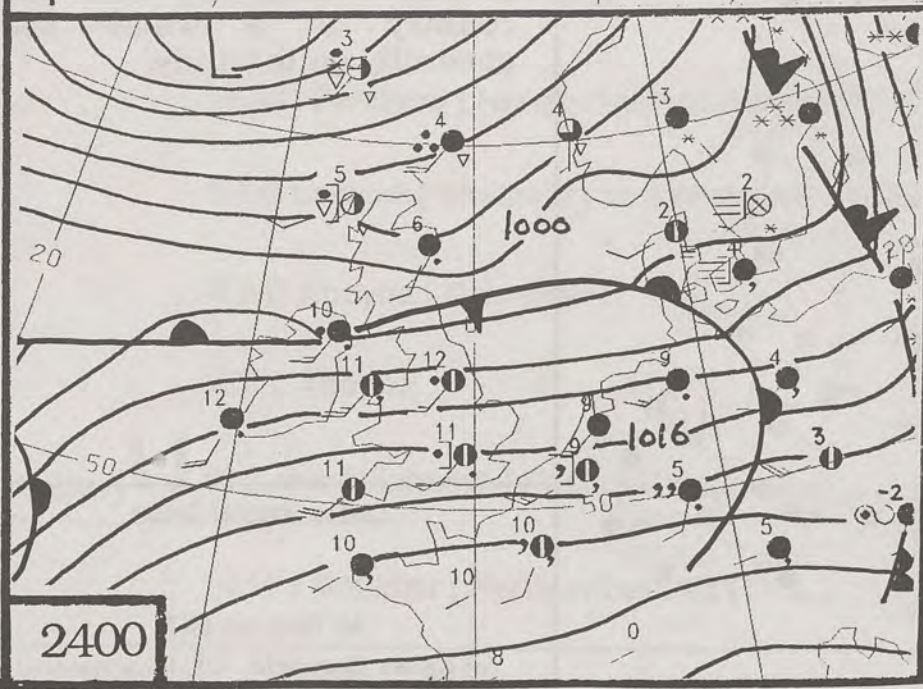 3
4
4
-3
1
5
6
1000
2
2
4
20
10
11
12
9
4
12
9
11
9
1016
3
50
11
5
50
-2
10
10
5
10
0
8
2400
L